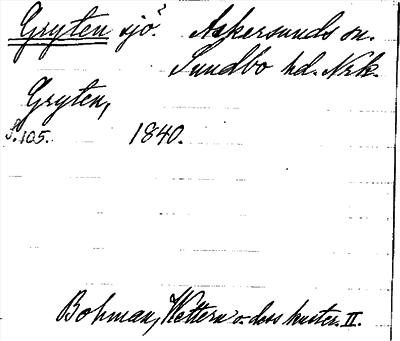 Gryten sjö. Askersunds sn.
Sundbo hd. Nrk.
Gryten,
S. 105. 1840.
Bohman, Wettern o. dess kuster. II.